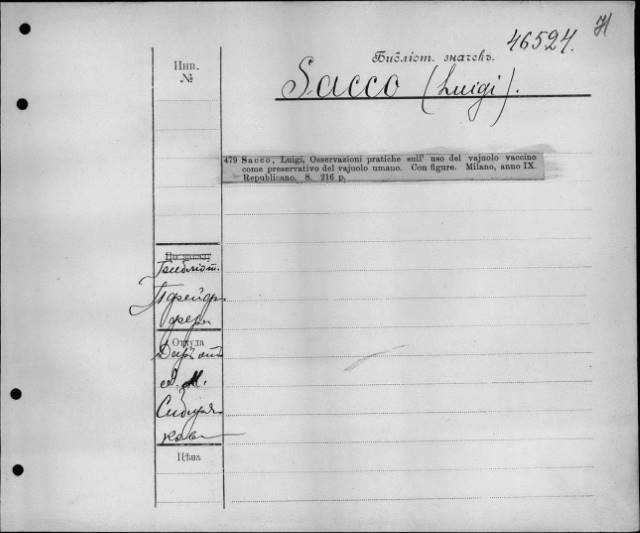 46524. H
Библіот. значекъ.
Инв.
№
Sacco (Luigi).
479 Sacco, Luigi, Osservazioni pratiche sull' uso del vajuolo vaccino
come preservativo del vajuolo umano. Con figure. Milano, anno IX.
Republicano. 8. 216 p.
Библіот.
Пфейф
фера
Откуда
Даръ от
А. М.
Сибиря
кова
Цѣна